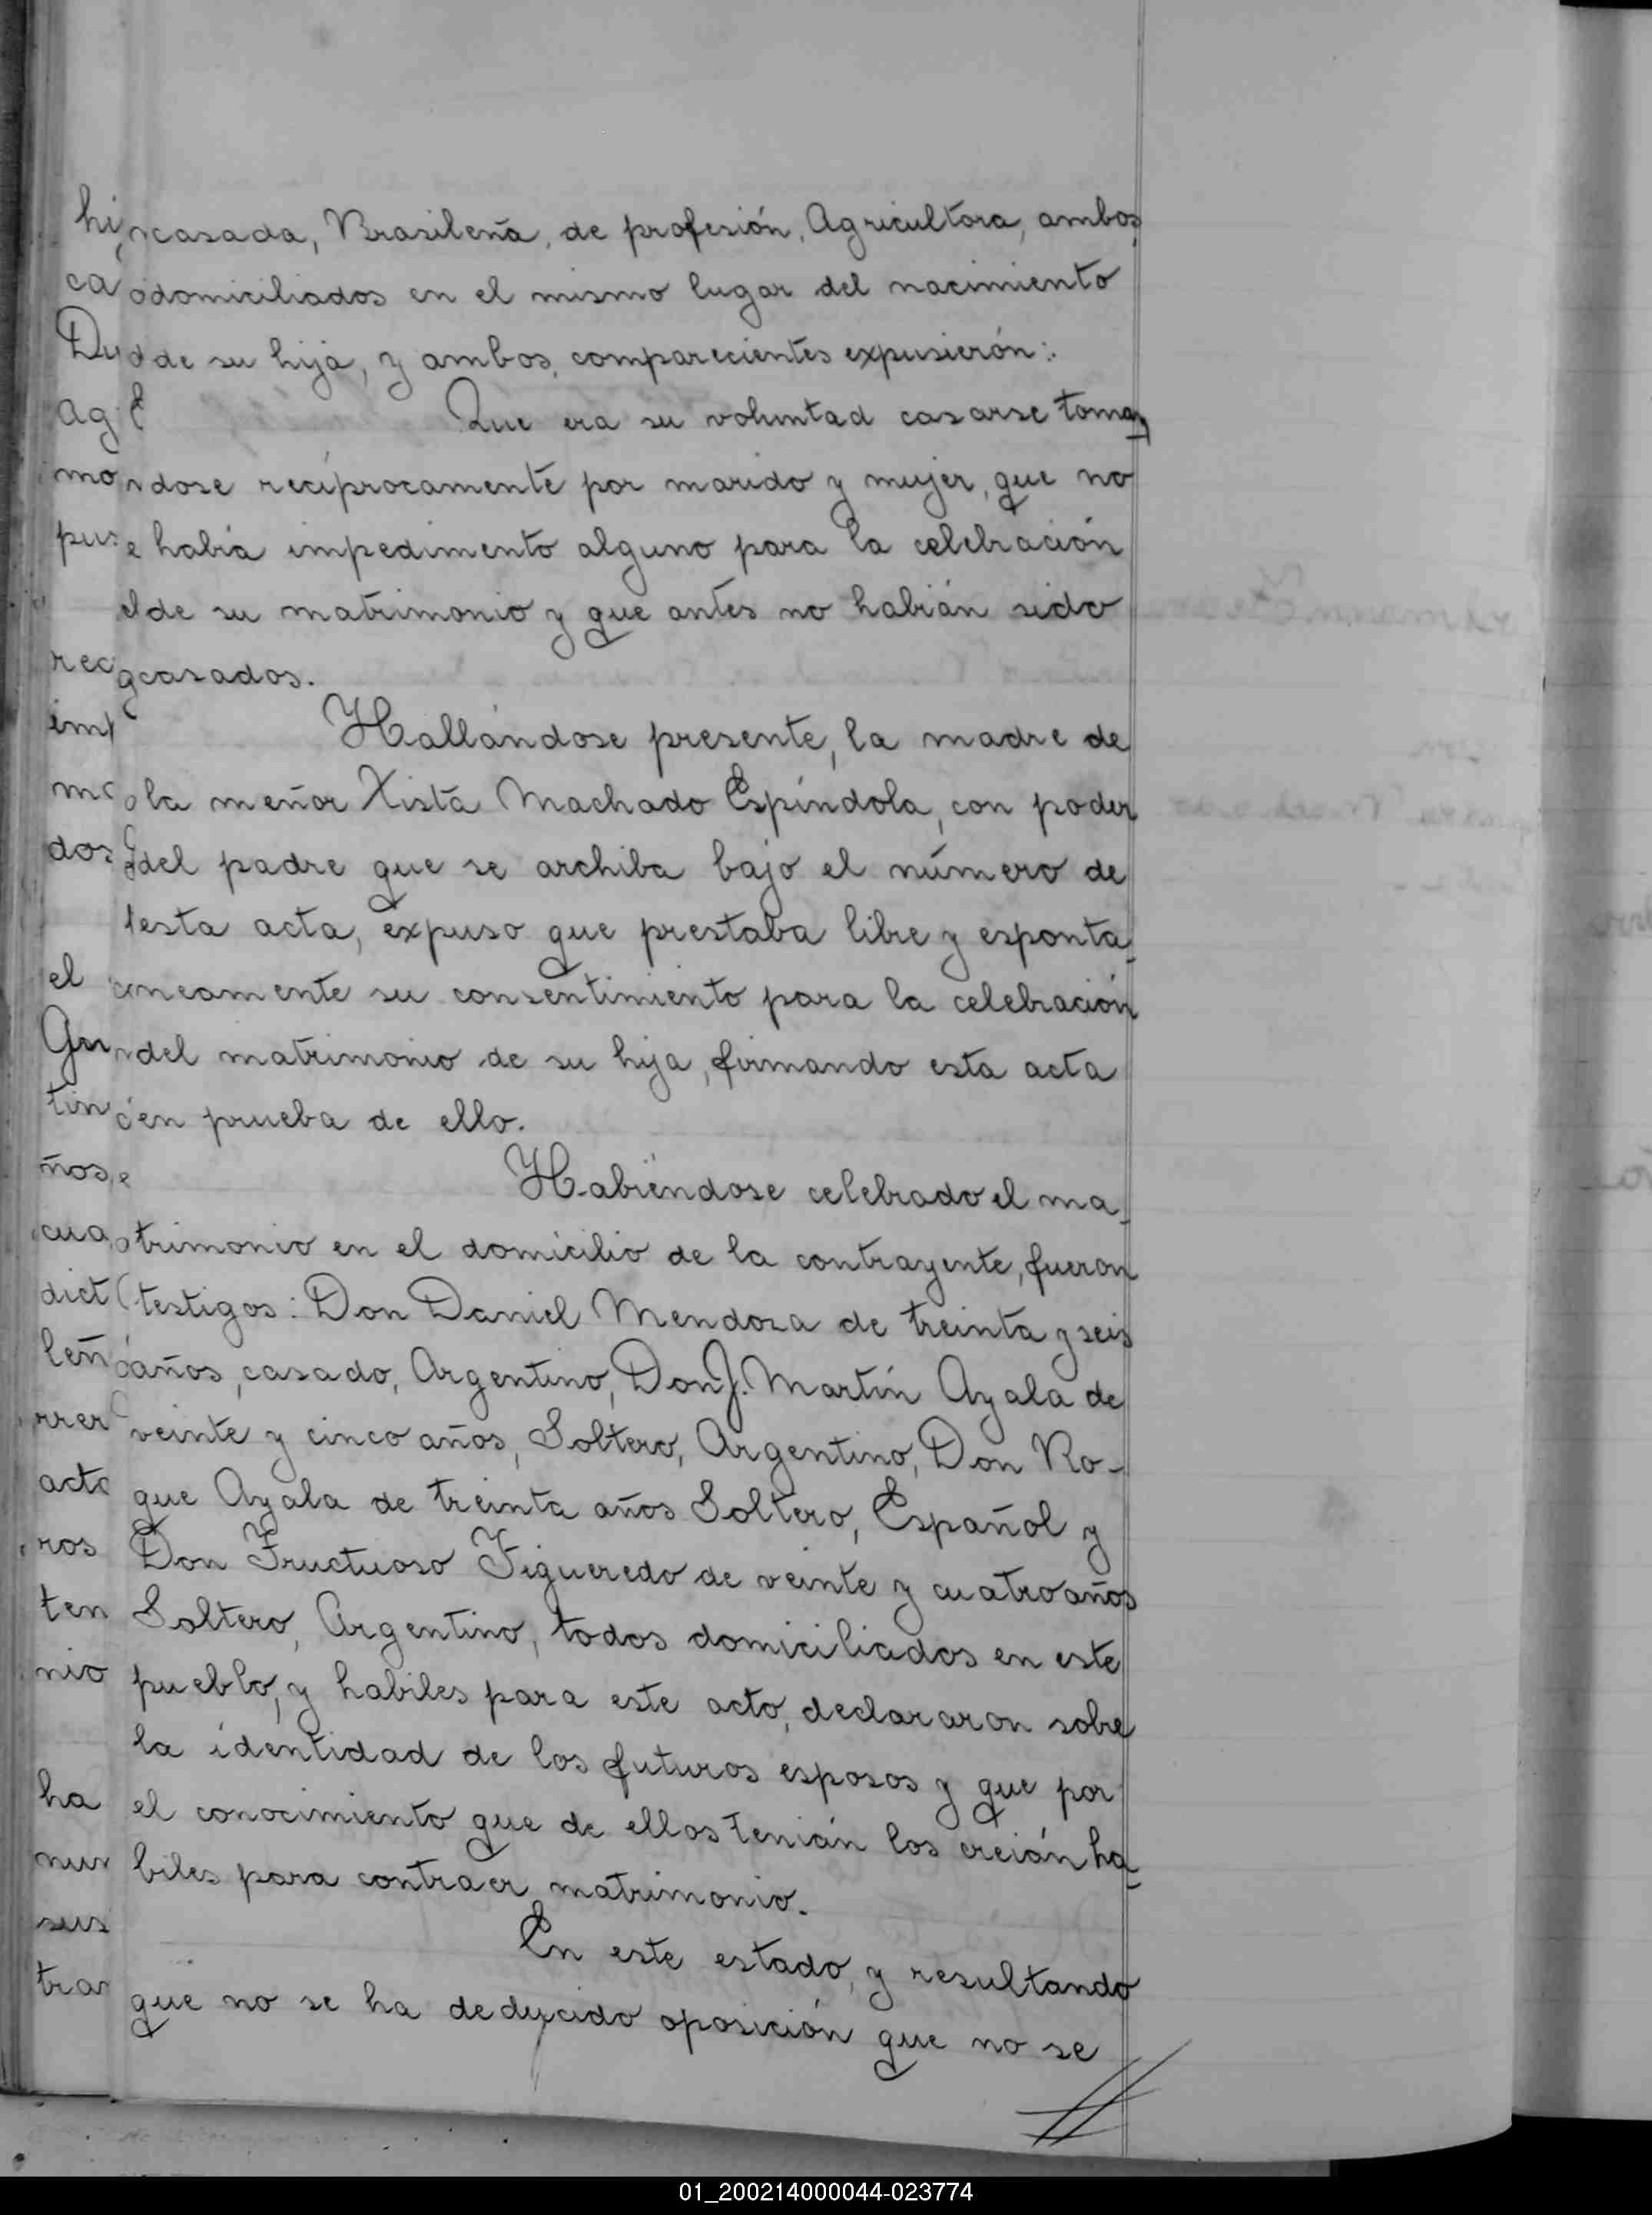 casada, Brasileña, de profesión, Agricultora, ambos
domiciliados en el mismo lugar del nacimiento
de su hija, y ambos, comparecientes expusierón:.
Que era su voluntad casarse toman
dose recíprocamente por marido y mujer, que no
había impedimento alguno para la celebración
de su matrimonio y que antes no habián sido
casados.
Hallándose presente, la madre de
la meñor Xista Machado Espíndola, con poder
del padre que se archiba bajo el número de
esta acta, expuso que prestaba libre y esponta-
neamente su consentimiento para la celebración
del matrimonio de su hija, firmando esta acta
en prueba de ello.
Habiéndose celebrado el ma-
trimonio en el domicilio de la contrayente, fueron
testigos: Don Daniel Mendoza de treinta y seis
años, casado, Argentino, Don J. Martín Ayala de
veinte y cinco años, Soltero, Argentino, Don Ro-
que Ayala de treinta años Soltero, Español y
Don Fructuoso Figueredo de veinte y cuatro años
Soltero, Argentino, todos domiciliados en este
pueblo, y habiles para este acto, declararon sobre
la identidad de los futuros esposos y que por
el conocimiento que de ellos tenián los creián ha-
biles para contraer matrimonio.
En este estado, y resultando
que no se ha deducido oposición que no se
01_200214000044-023774